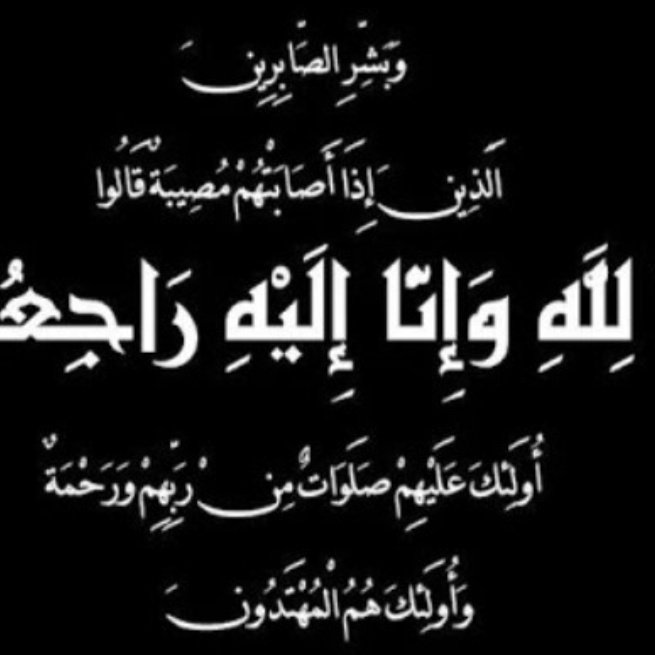 وَبَشِّرِ الصَّابِرِينَ
الَّذِينَ إِذَا أَصَابَتْهُمْ مُصِيبَةٌ قَالُوا
لِلَّهِ وَإِنَّا إِلَيْهِ رَاجِعُ
أُولَئِكَ عَلَيْهِمْ صَلَوَاتٌ مِنْ رَبِّهِمْ وَرَحْمَةٌ
وَأُولَئِكَ هُمُ الْمُهْتَدُونَ